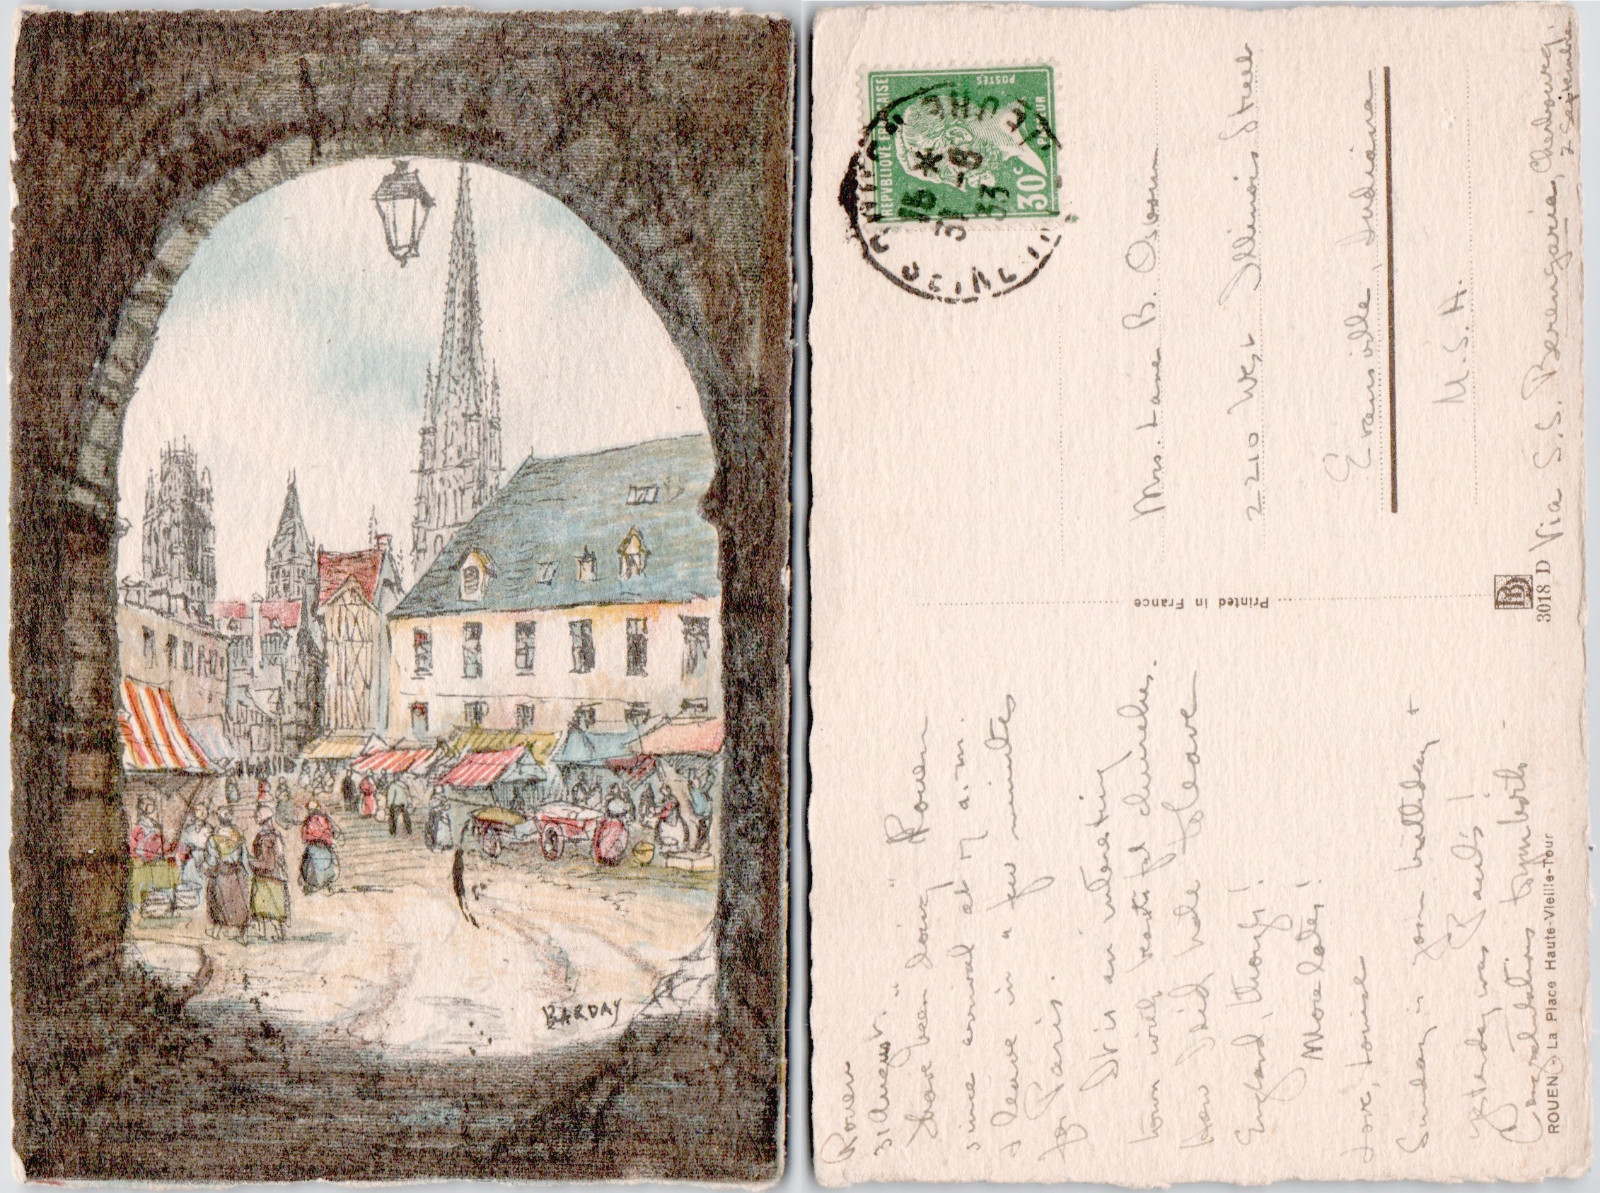 BARDAY
REPVBLIQVE FRANCAISE
POSTES
30c
31 -8
33
SEINE
Rouen
31 August.
Have been doing "Rouen"
since arrival at 7 a.m.
I leave in a few minutes
for Paris.
It is an interesting
town with beautiful churches.
How I did hate to leave
England, though!
More later!
Love, Louise
Sunday is your birthday +
yesterday was Paul's!
Congratulations to you both -
ROUEN - La Place Haute-Vieille-Tour
Printed in France
3018 D
Mrs. Lane B. Osborn
2210 West Illinois Street
Evansville, Indiana
U.S.A.
Via S.S. Berengaria, Cherbourg,
2 Septembre